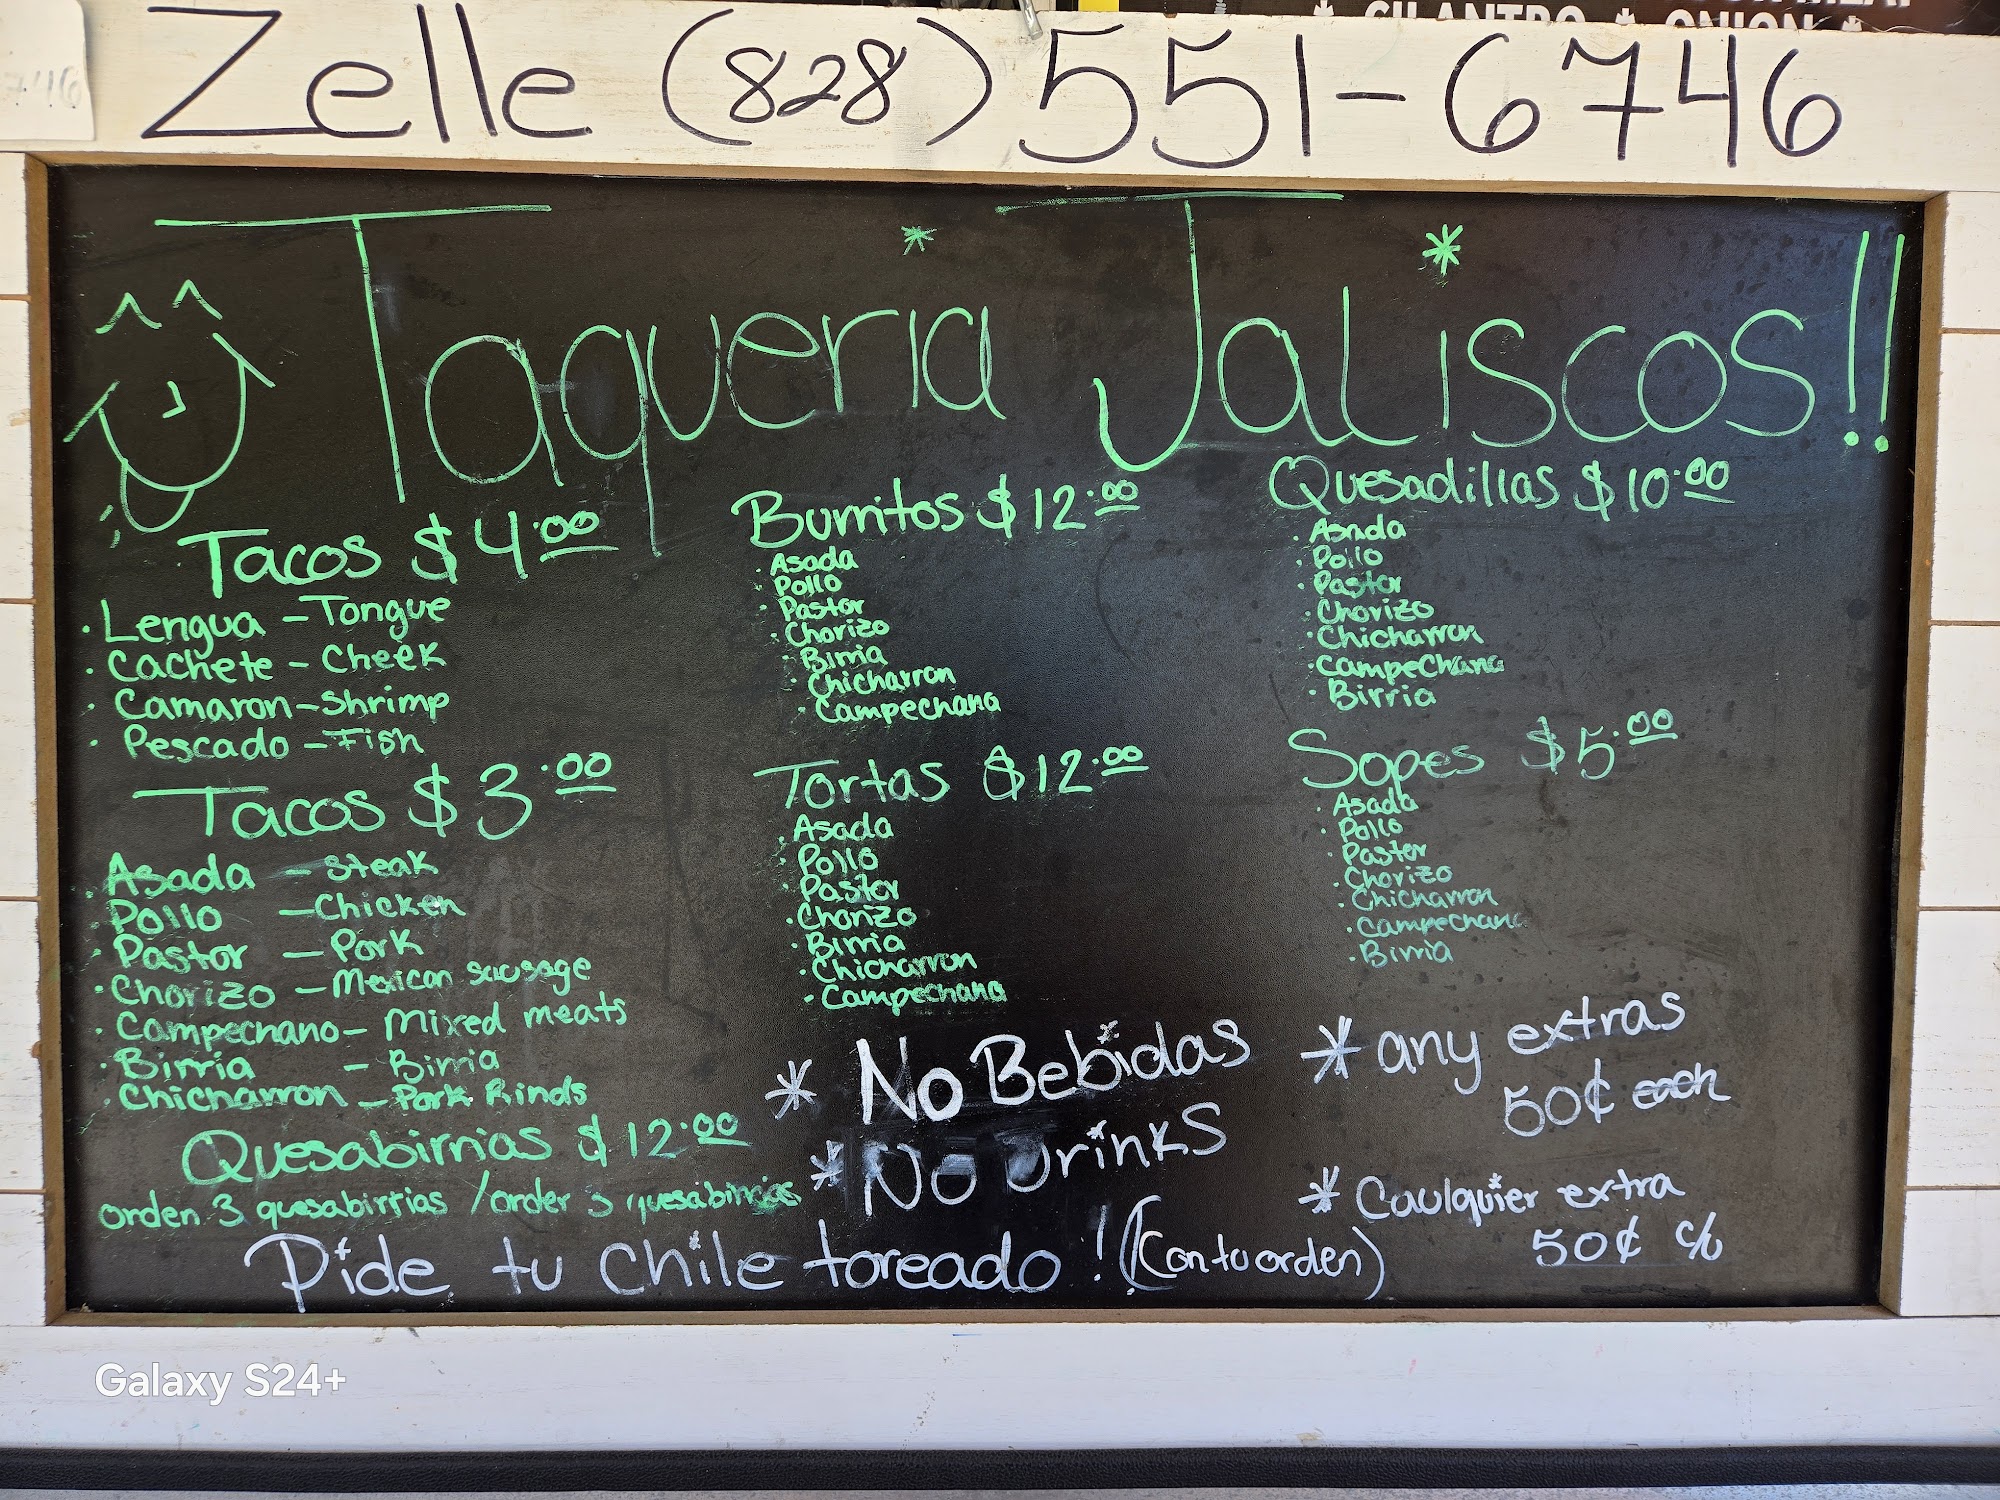 * CILANTRO * ONION *
Zelle (828) 551-6746
Taqueria Jaliscos!!
Tacos $4.00
· Lengua - Tongue
· Cachete - Cheek
· Camaron - Shrimp
· Pescado - Fish
Tacos $3.00
· Asada - Steak
· Pollo - Chicken
· Pastor - Pork
· Chorizo - Mexican sausage
· Campechano - Mixed meats
· Birria - Birria
· Chicharron - Pork Rinds
Quesabirrias $12.00
orden 3 quesabirrias / order 3 quesabirrias
Burritos $12.00
· Asada
· Pollo
· Pastor
· Chorizo
· Birria
· Chicharron
· Campechana
Tortas $12.00
· Asada
· Pollo
· Pastor
· Chorizo
· Birria
· Chicharron
· Campechana
Quesadillas $10.00
· Asada
· Pollo
· Pastor
· Chorizo
· Chicharron
· Campechana
· Birria
Sopes $5.00
· Asada
· Pollo
· Pastor
· Chorizo
· Chicharron
· Campechana
· Birria
* No Bebidas
* No Drinks
* any extras
50¢ each
* Caulquier extra
50¢ c/u
Pide tu Chile toreado! (Con tu orden)
Galaxy S24+